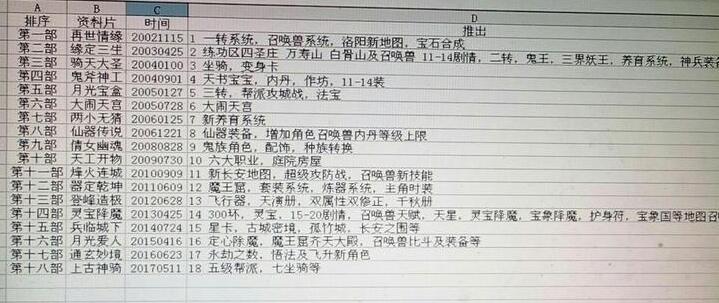 A B C D
排序 资料片 时间 推出
第一部 再世情缘 20021115 1 一转系统，召唤兽系统，洛阳新地图，宝石合成
第二部 缘定三生 20030425 2 练功区四圣庄 万寿山 白骨山及召唤兽 11-14剧情，二转，鬼王，三界妖王，养育系统，神兵装备
第三部 骑天大圣 20040100 3 坐骑，变身卡
第四部 鬼斧神工 20040901 4 天书宝宝，内丹，作坊，11-14装
第五部 月光宝盒 20050127 5 三转，帮派攻城战，法宝
第六部 大闹天宫 20050728 6 大闹天宫
第七部 两小无猜 20060125 7 新养育系统
第八部 仙器传说 20061221 8 仙器装备，增加角色召唤兽内丹等级上限
第九部 倩女幽魂 20080828 9 鬼族角色，配饰，种族转换
第十部 天工开物 20090730 10 六大职业，庭院房屋
第十一部 烽火连城 20100909 11 新长安地图，超级攻防战，召唤兽新技能
第十二部 器定乾坤 20110609 12 魔王窟，套装系统，炼器系统，主角时装
第十三部 登峰造极 20120628 13 飞行器，天演册，双属性双修正，千秋册
第十四部 灵宝降魔 20130425 14 300环，灵宝，15-20剧情，召唤兽天赋，天星，灵宝降魔，宝象降魔，护身符，宝象国等地图召
第十五部 兵临城下 20140724 15 星卡，古城密境，孤竹城，长安之围等
第十六部 月光爱人 20150416 16 定心除魔，魔王窟齐天大殿，召唤兽比斗及装备等
第十七部 通玄妙境 20160623 17 永劫之数，悟法及飞升新角色
第十八部 上古神骑 20170511 18 五级帮派，七坐骑等